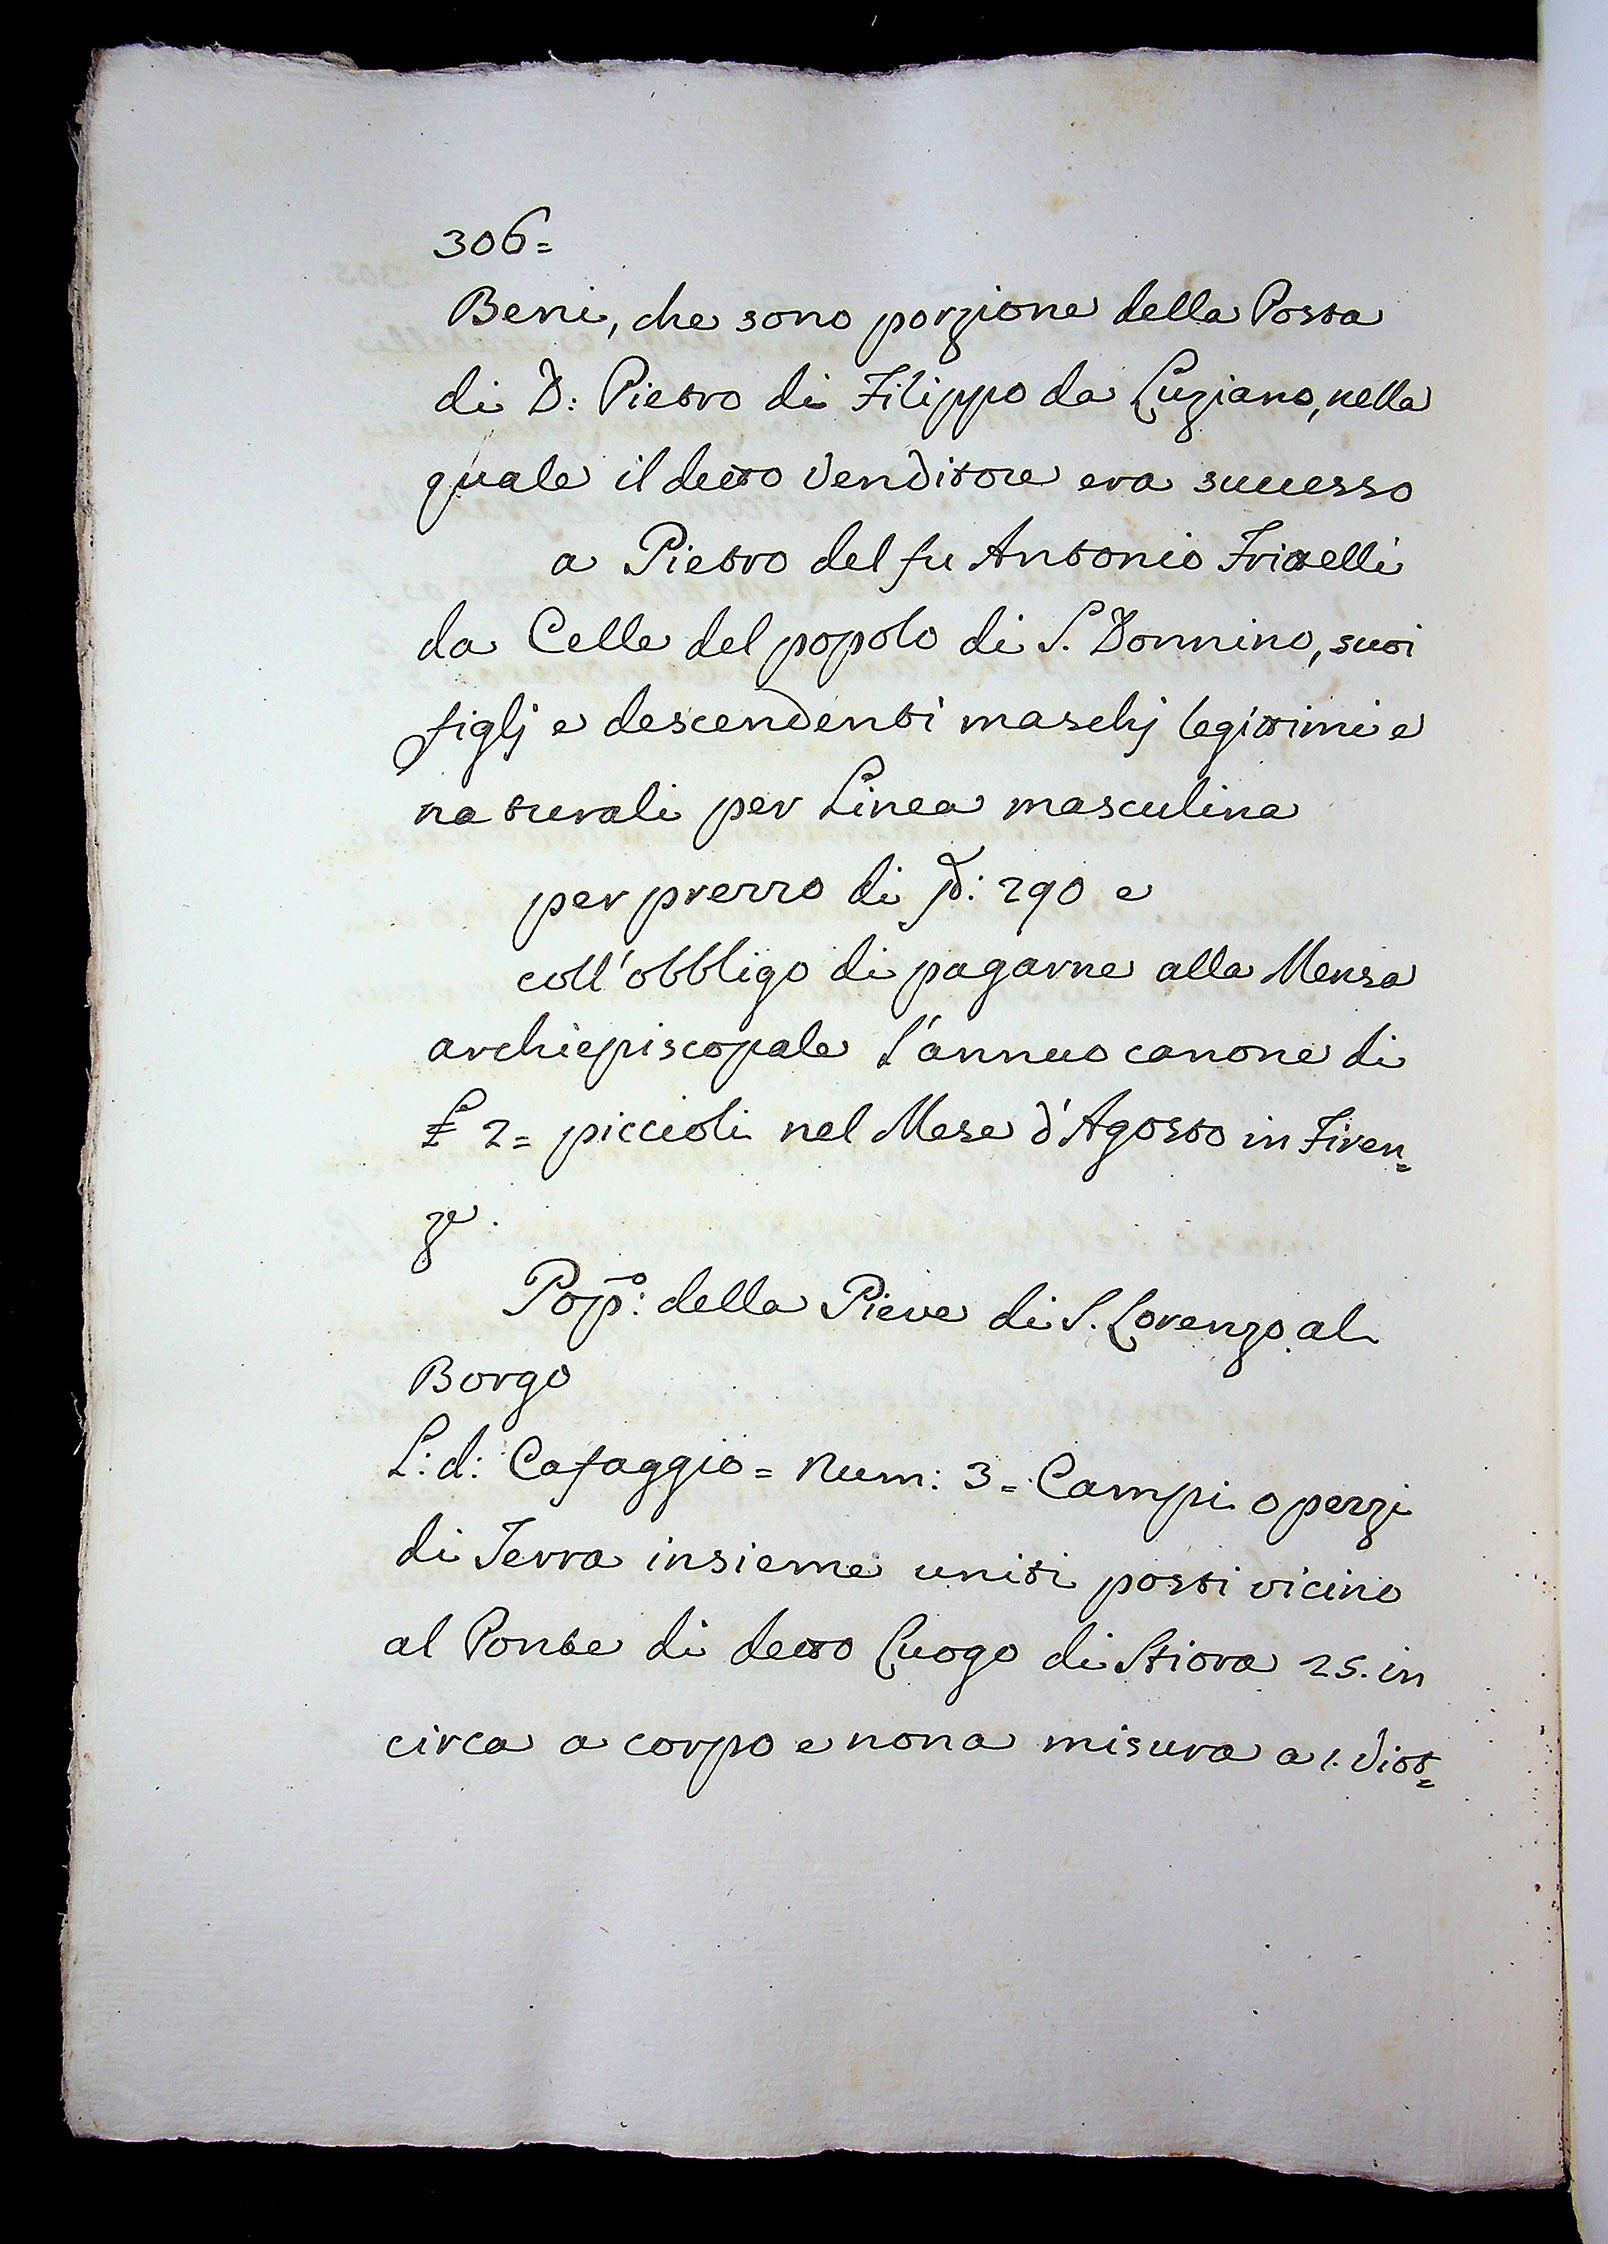 306=
Beni, che sono porzione della Posta
di D: Pietro di Filippo da Luziano, nella
quale il detto Venditore era successo
a Pietro del fu Antonio Frittelli
da Celle del popolo di S. Donnino, suoi
figlj e descendenti maschj legittimi e
naturali per Linea masculina
per prezzo di ₯: 290 e
coll'obbligo di pagarne alla Mensa
archiepiscopale l'annuo canone di
£ 2= piccioli nel Mese d'Agosto in Firen=
ze.
Pop:º della Pieve di S. Lorenzo al
Borgo
L: d: Cafaggio = Num: 3= Campi o pezzi
di Terra insieme uniti posti vicino
al Ponte di detto Luogo di Stiora 25. in
circa a corpo e non a misura a 1. Viot=